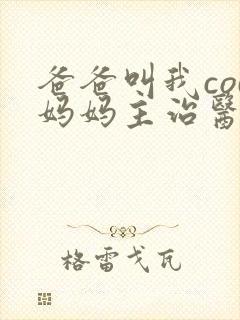 爸爸叫我co
妈妈主治醫
格雷戈瓦